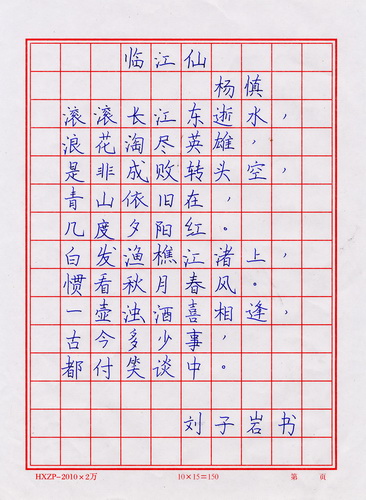 临江仙
杨慎
滚滚长江东逝水，
浪花淘尽英雄，
是非成败转头空，
青山依旧在，
几度夕阳红。
白发渔樵江渚上，
惯看秋月春风。
一壶浊酒喜相逢，
古今多少事，
都付笑谈中。
刘子岩书
HXZP-2010×2万 10×15=150 第 页